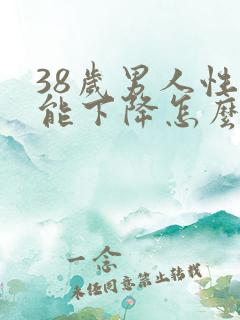 38歲男人性
能下降怎麼
一念
未经同意禁止转载